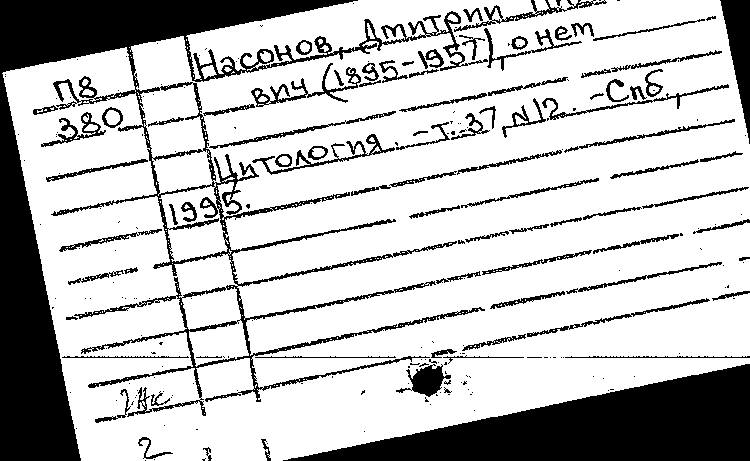 П8
380
Насонов, Дмитрий
вич (1895-1957), о нем
Цитология. -Т. 37, N12. -Спб,
1995.
2